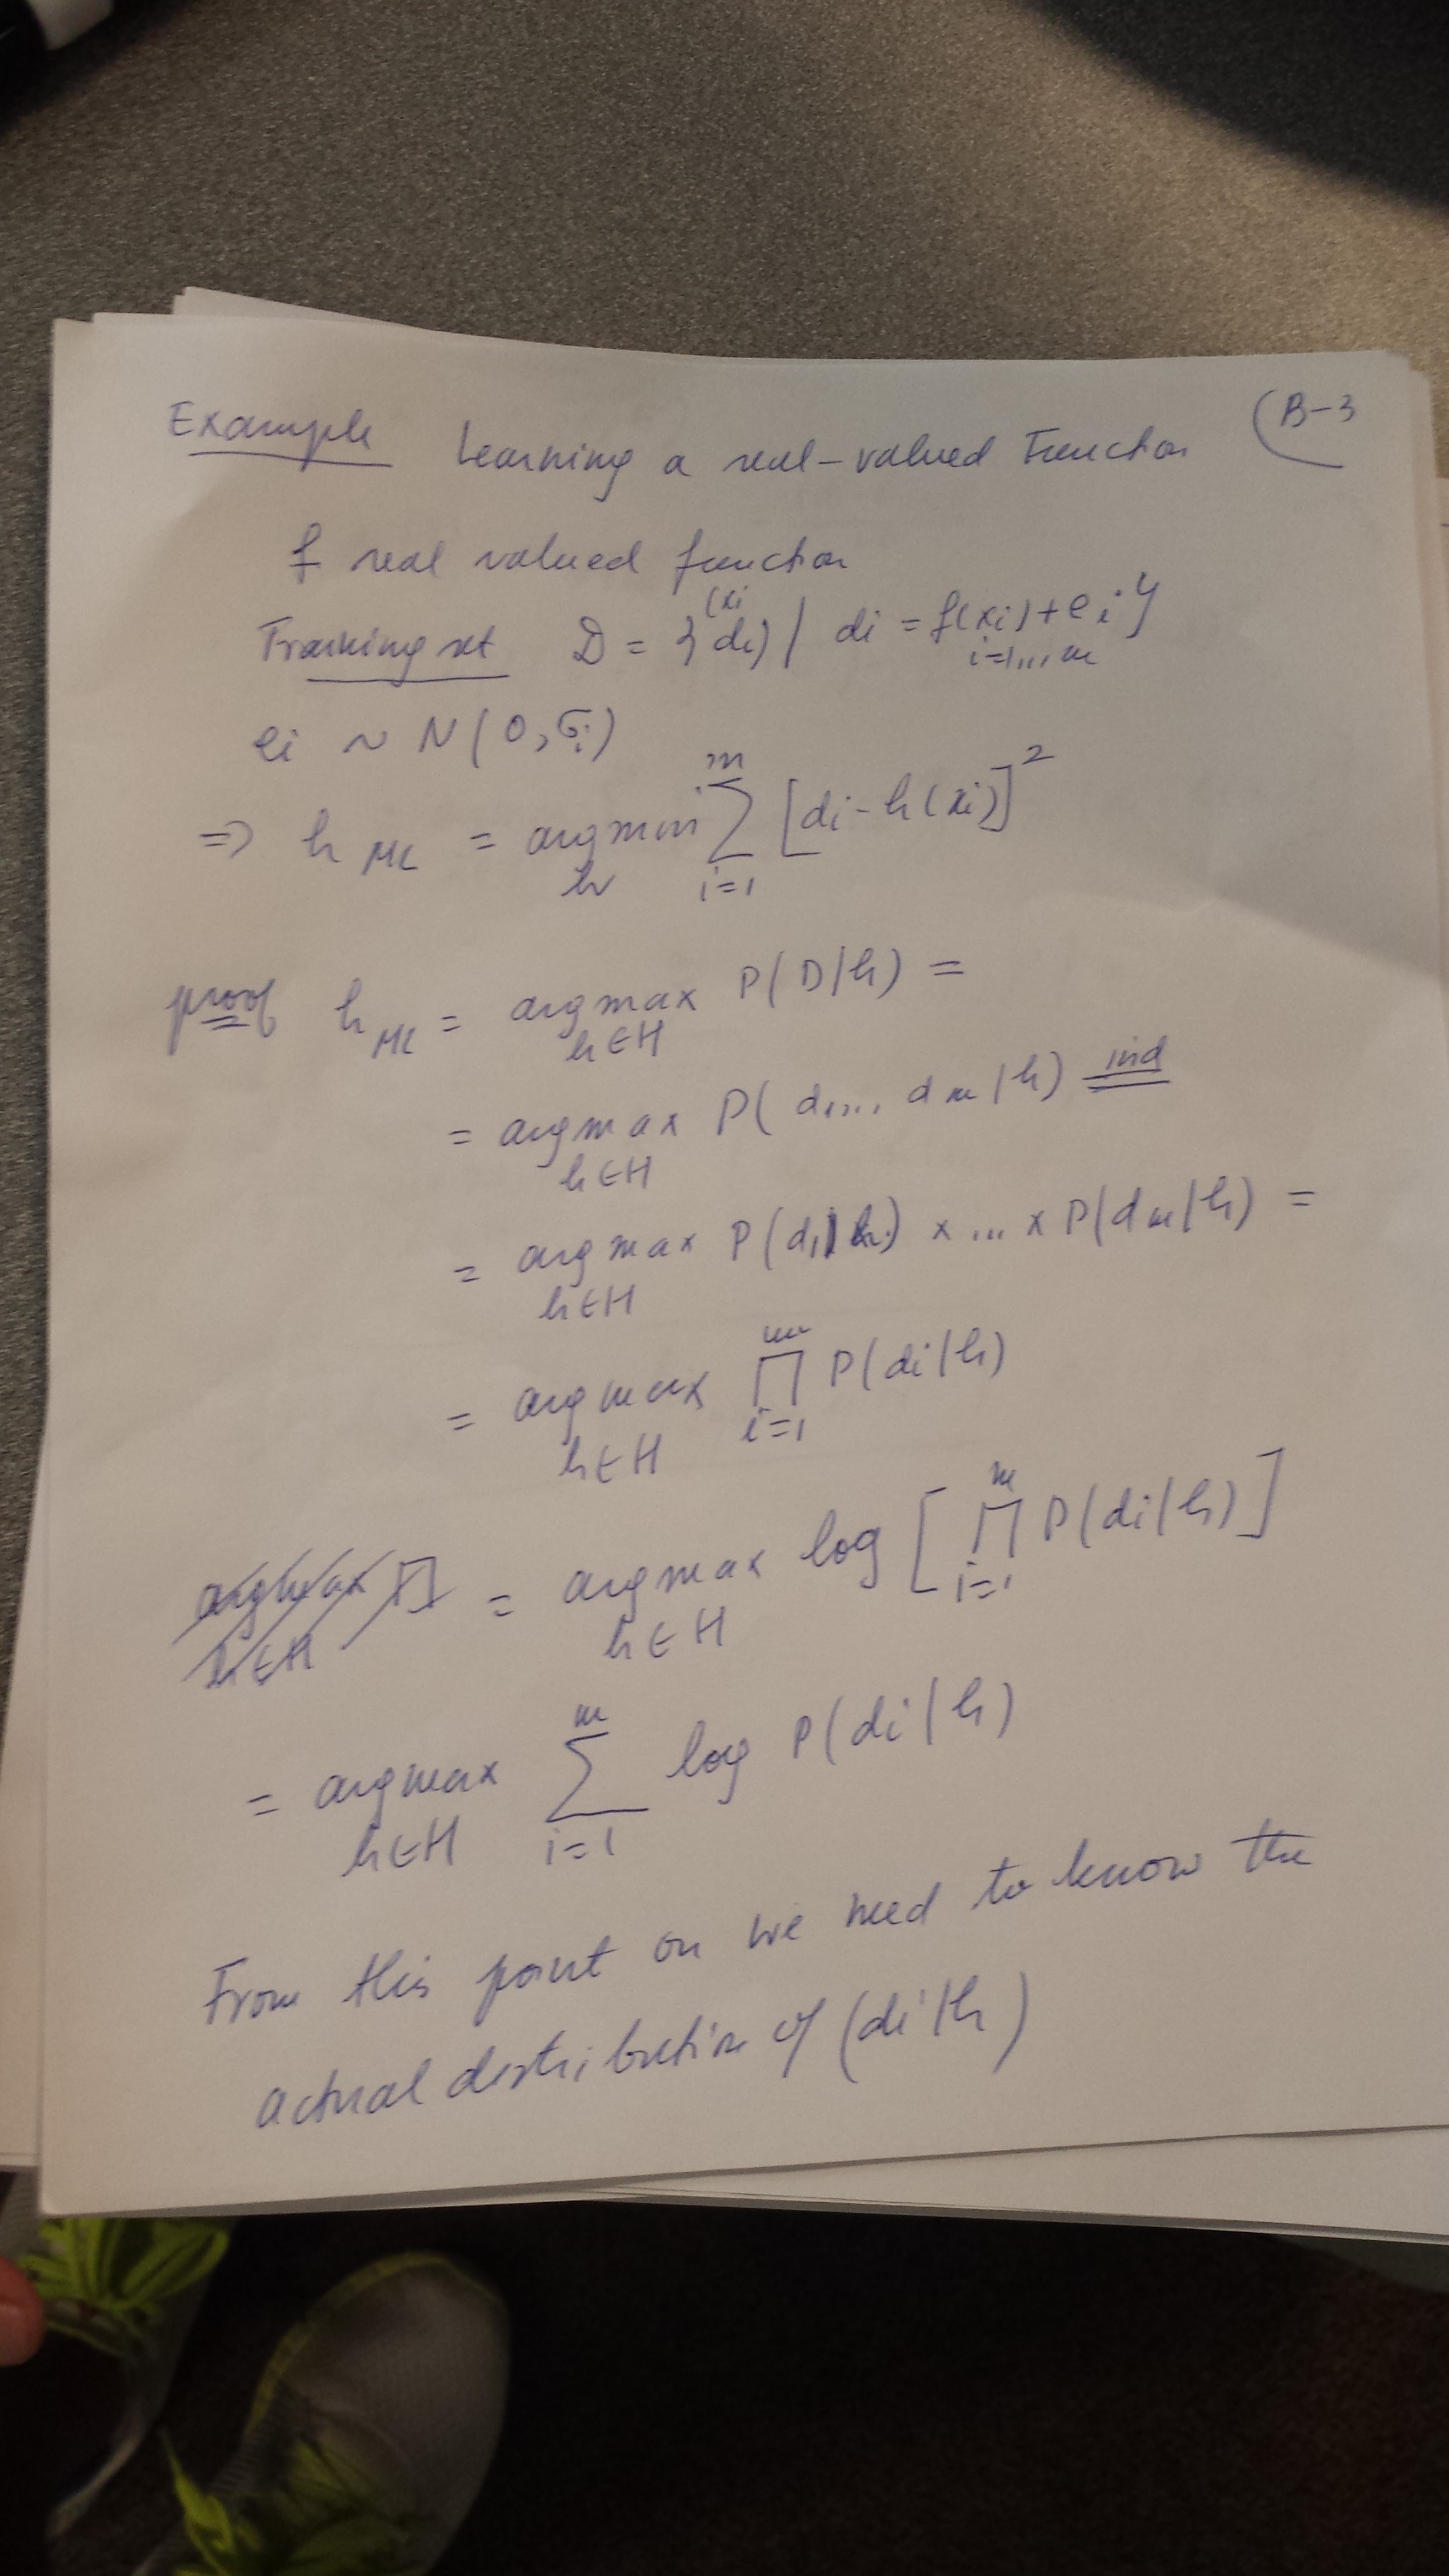 Example Learning a real-valued Function (B-3
f real valued function
Training set D = { (xi di) / di = f(xi) + ei }
i=1,..., m
ei ~ N(0, σi)
=> h ML = argmin h m Σ i=1 [di - h(xi)]²
proof h ML = argmax h∈H P(D/h) =
= argmax h∈H P(d1,..., dm/h) ind =
= argmax h∈H P(d1|h) x ... x P(dm/h) =
= argmax h∈H m ∏ i=1 P(di/h)
= argmax h∈H log [ m ∏ i=1 P(di/h) ]
= argmax h∈H m Σ i=1 log P(di/h)
From this point on we need to know the
actual distribution of (di/h)